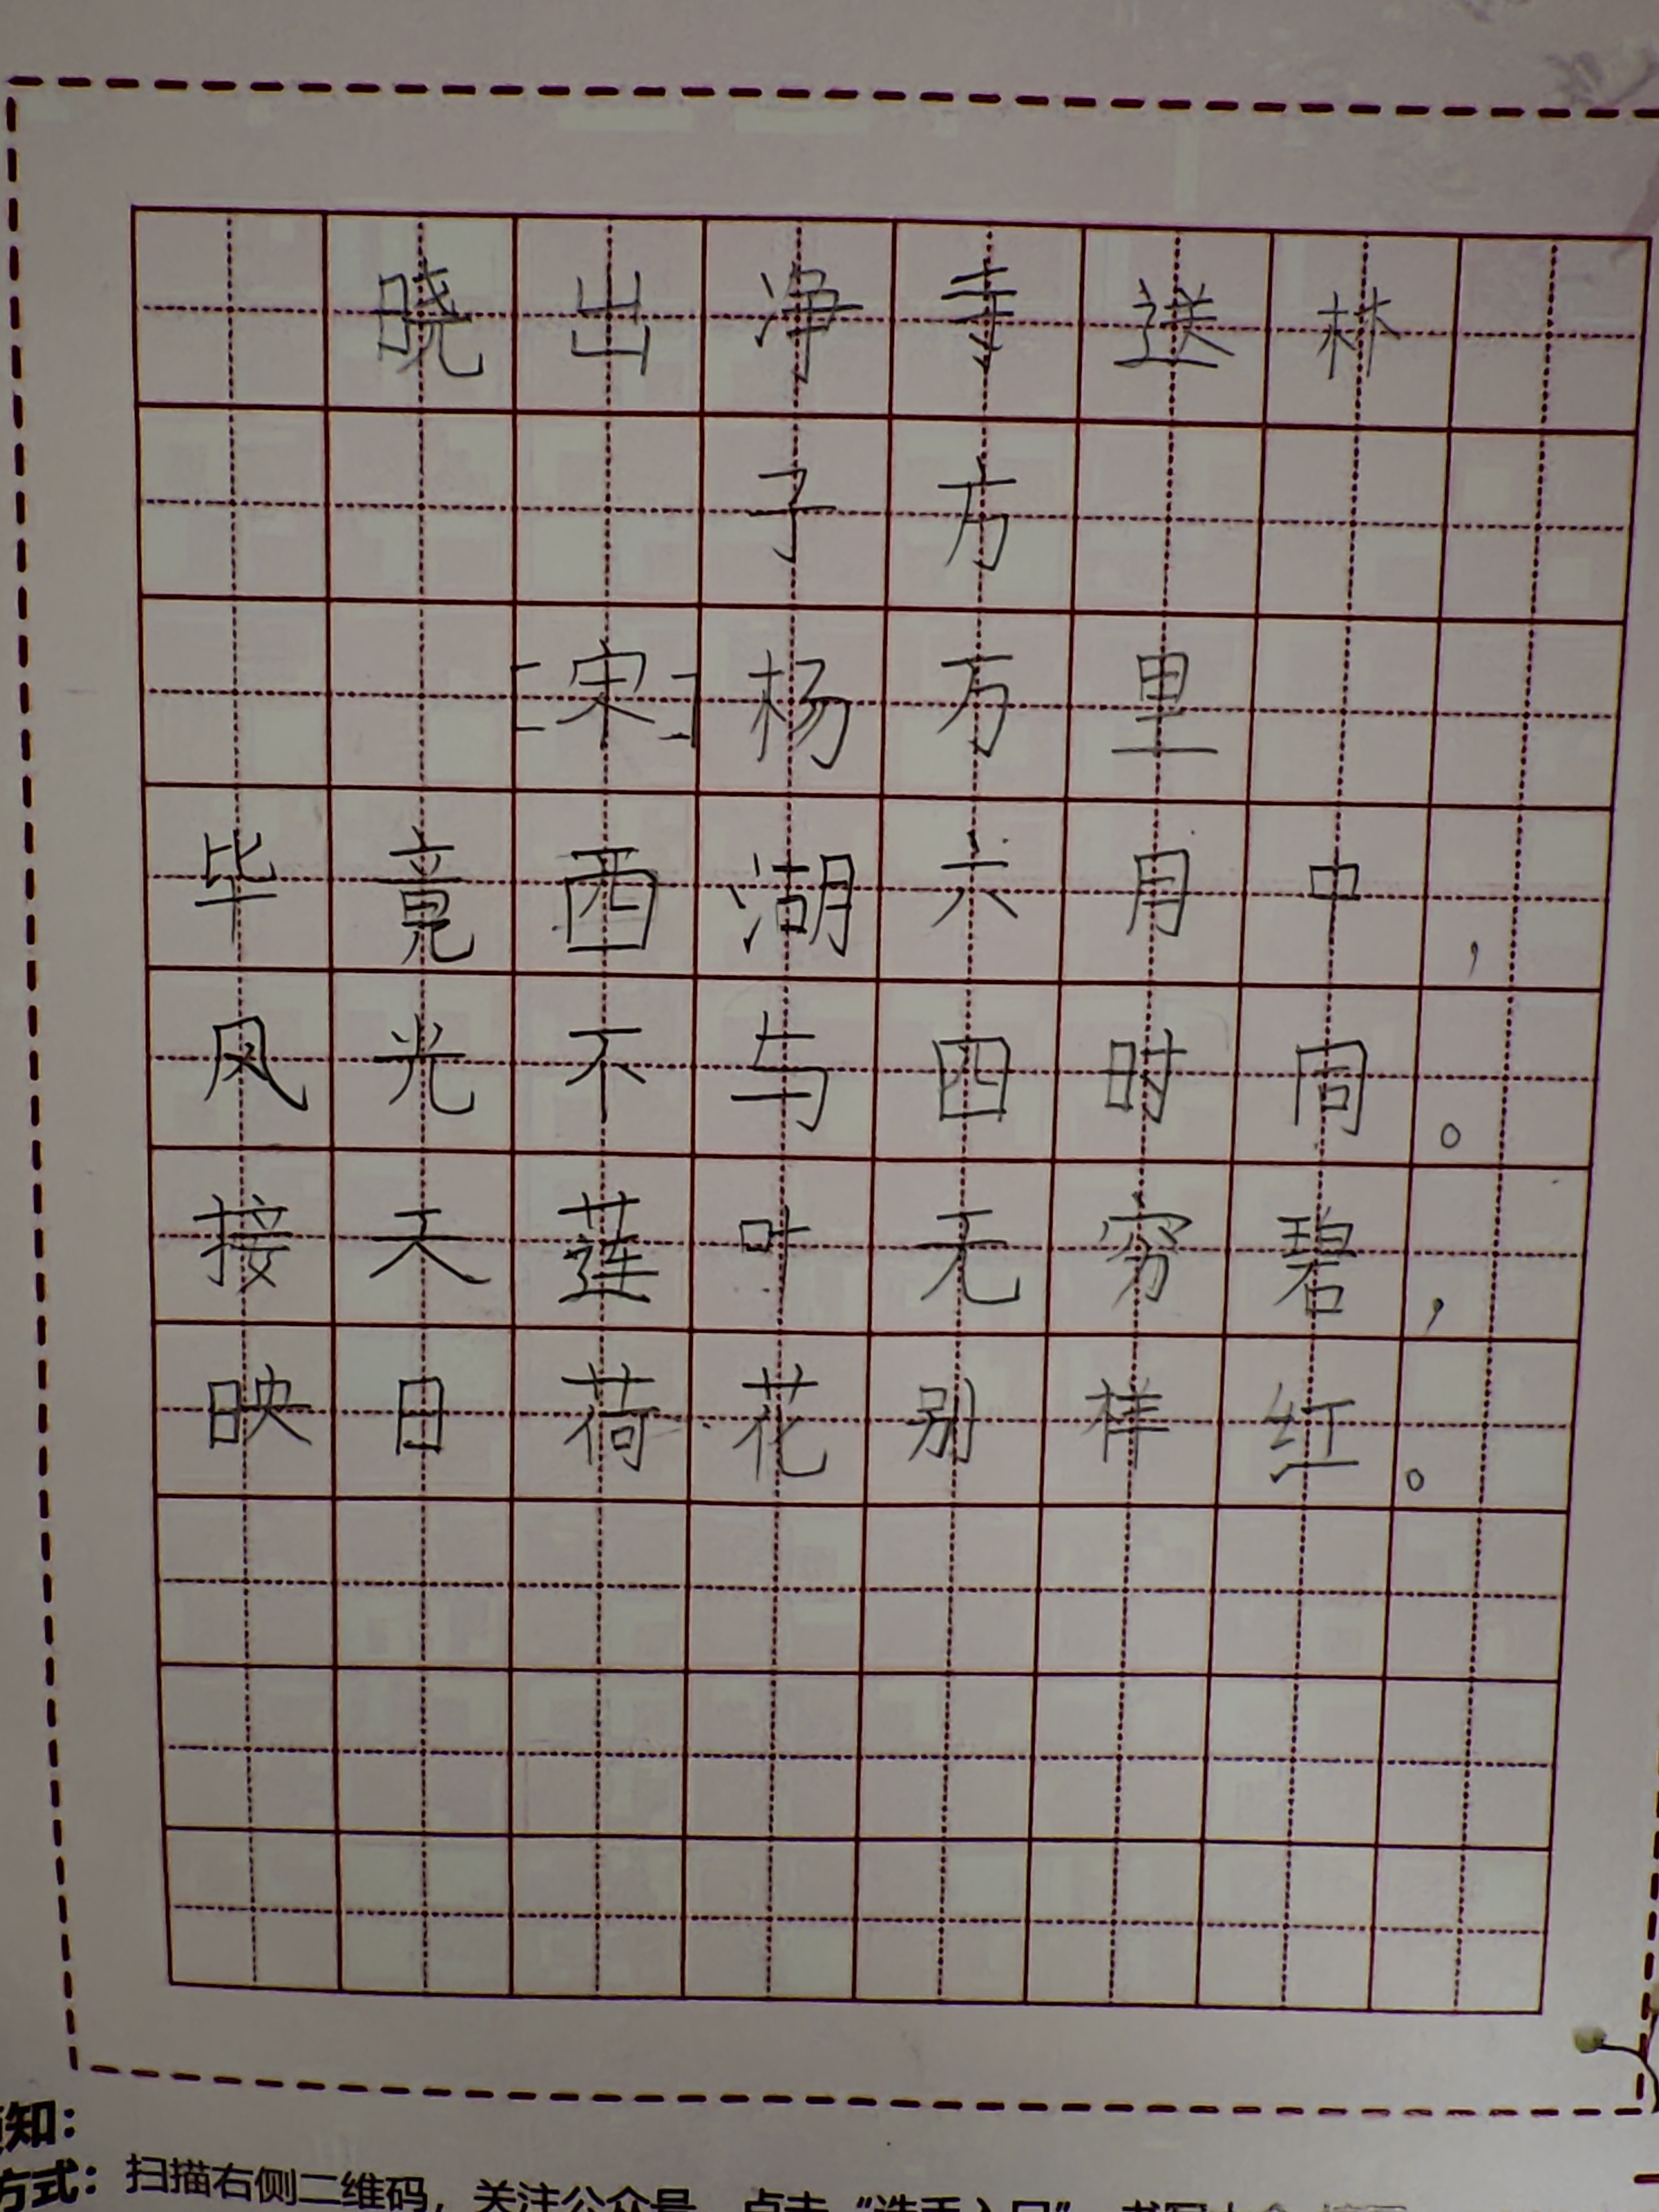 晓出净寺送林
子方
[宋]杨万里
毕竟西湖六月中，
风光不与四时同。
接天莲叶无穷碧，
映日荷花别样红。
知：
方式：扫描右侧二维码，关注公众号，点击“选手入口”，